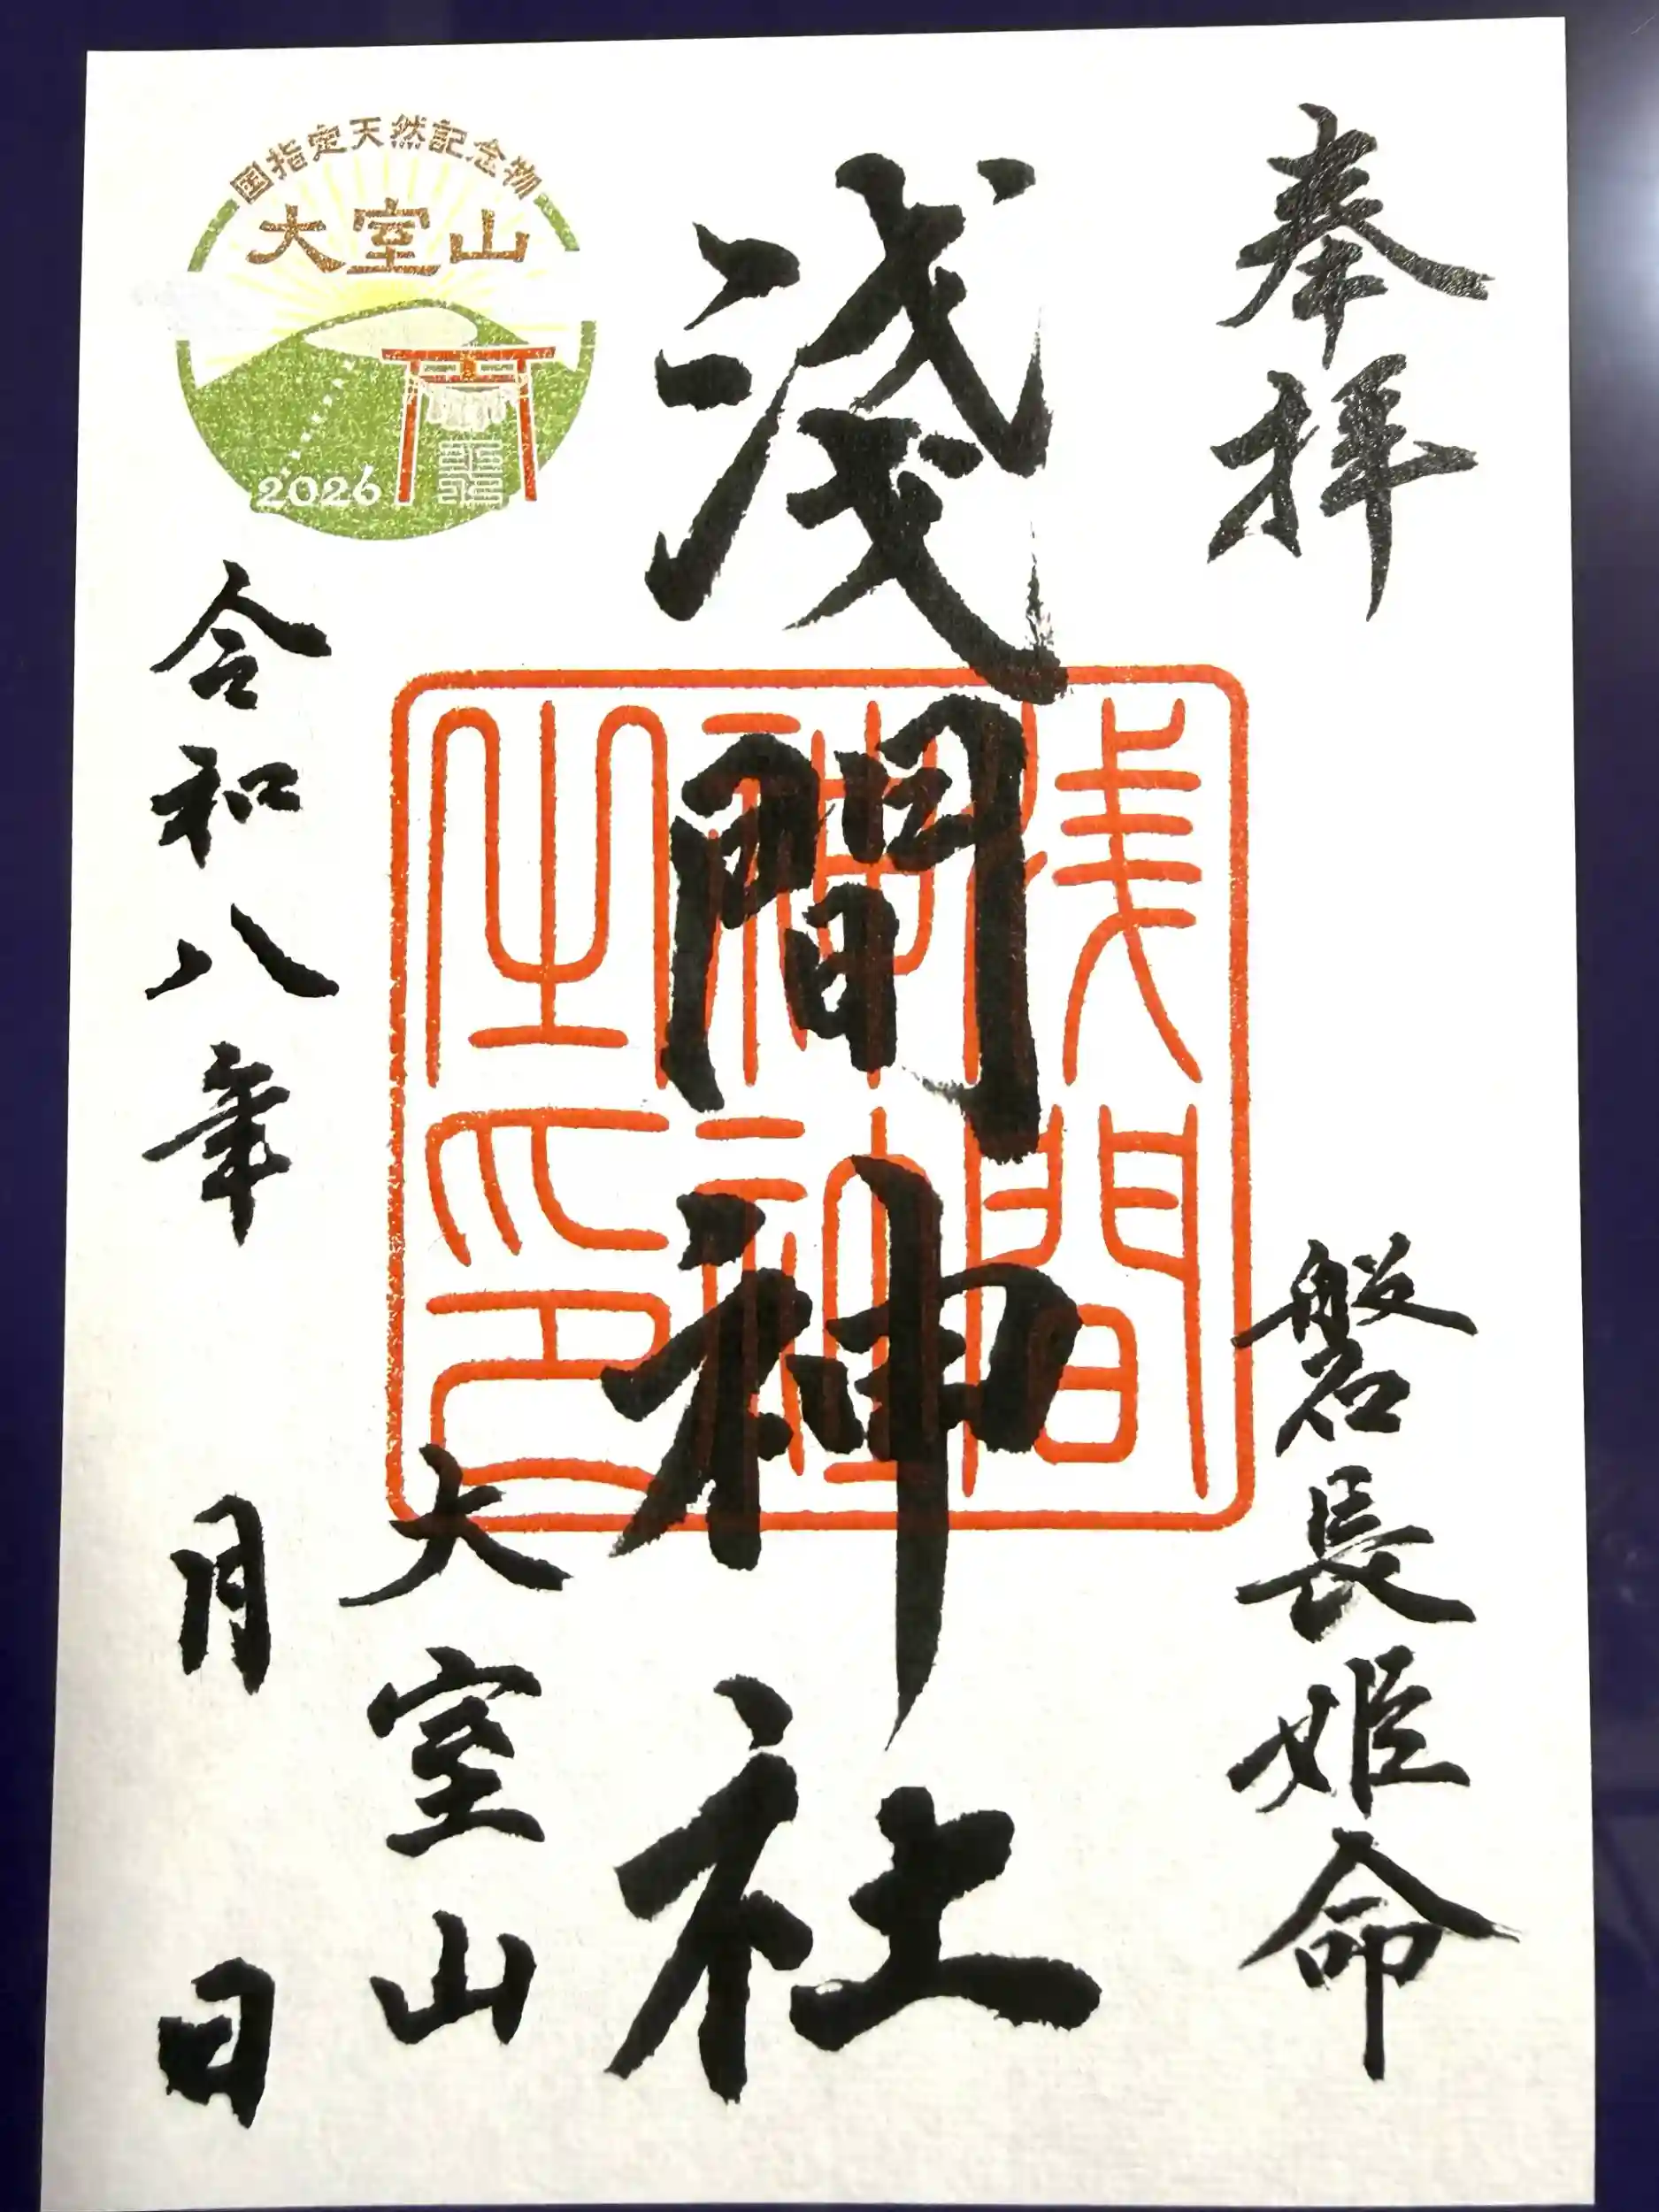 奉拝
磐長姫命
淺間神社
浅間
神社
之印
大室山
国指定天然記念物
大室山
2026
令和八年 月 日